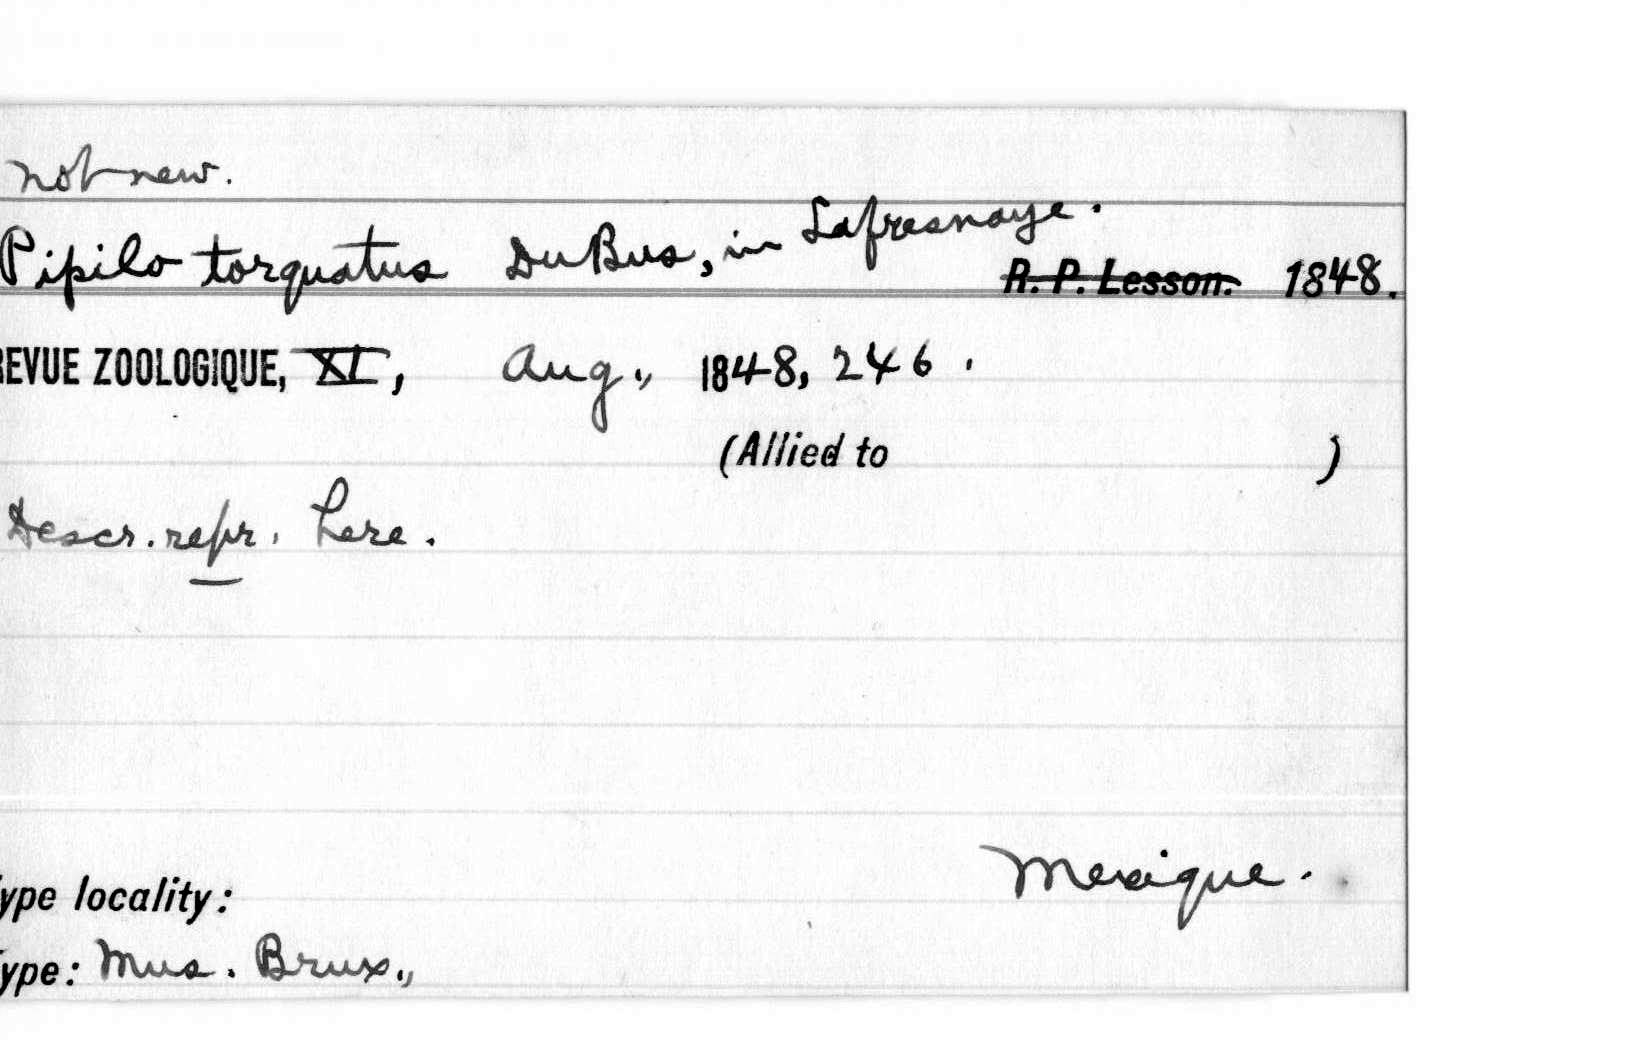 not new.
Pipilo torquatus DuBus, in Lafresnaye.
R. P. Lesson. 1848.
REVUE ZOOLOGIQUE, XI, Aug., 1848, 246.
(Allied to )
Descr. repr. here.
Mexique.
ype locality:
ype: Mus. Brux.,